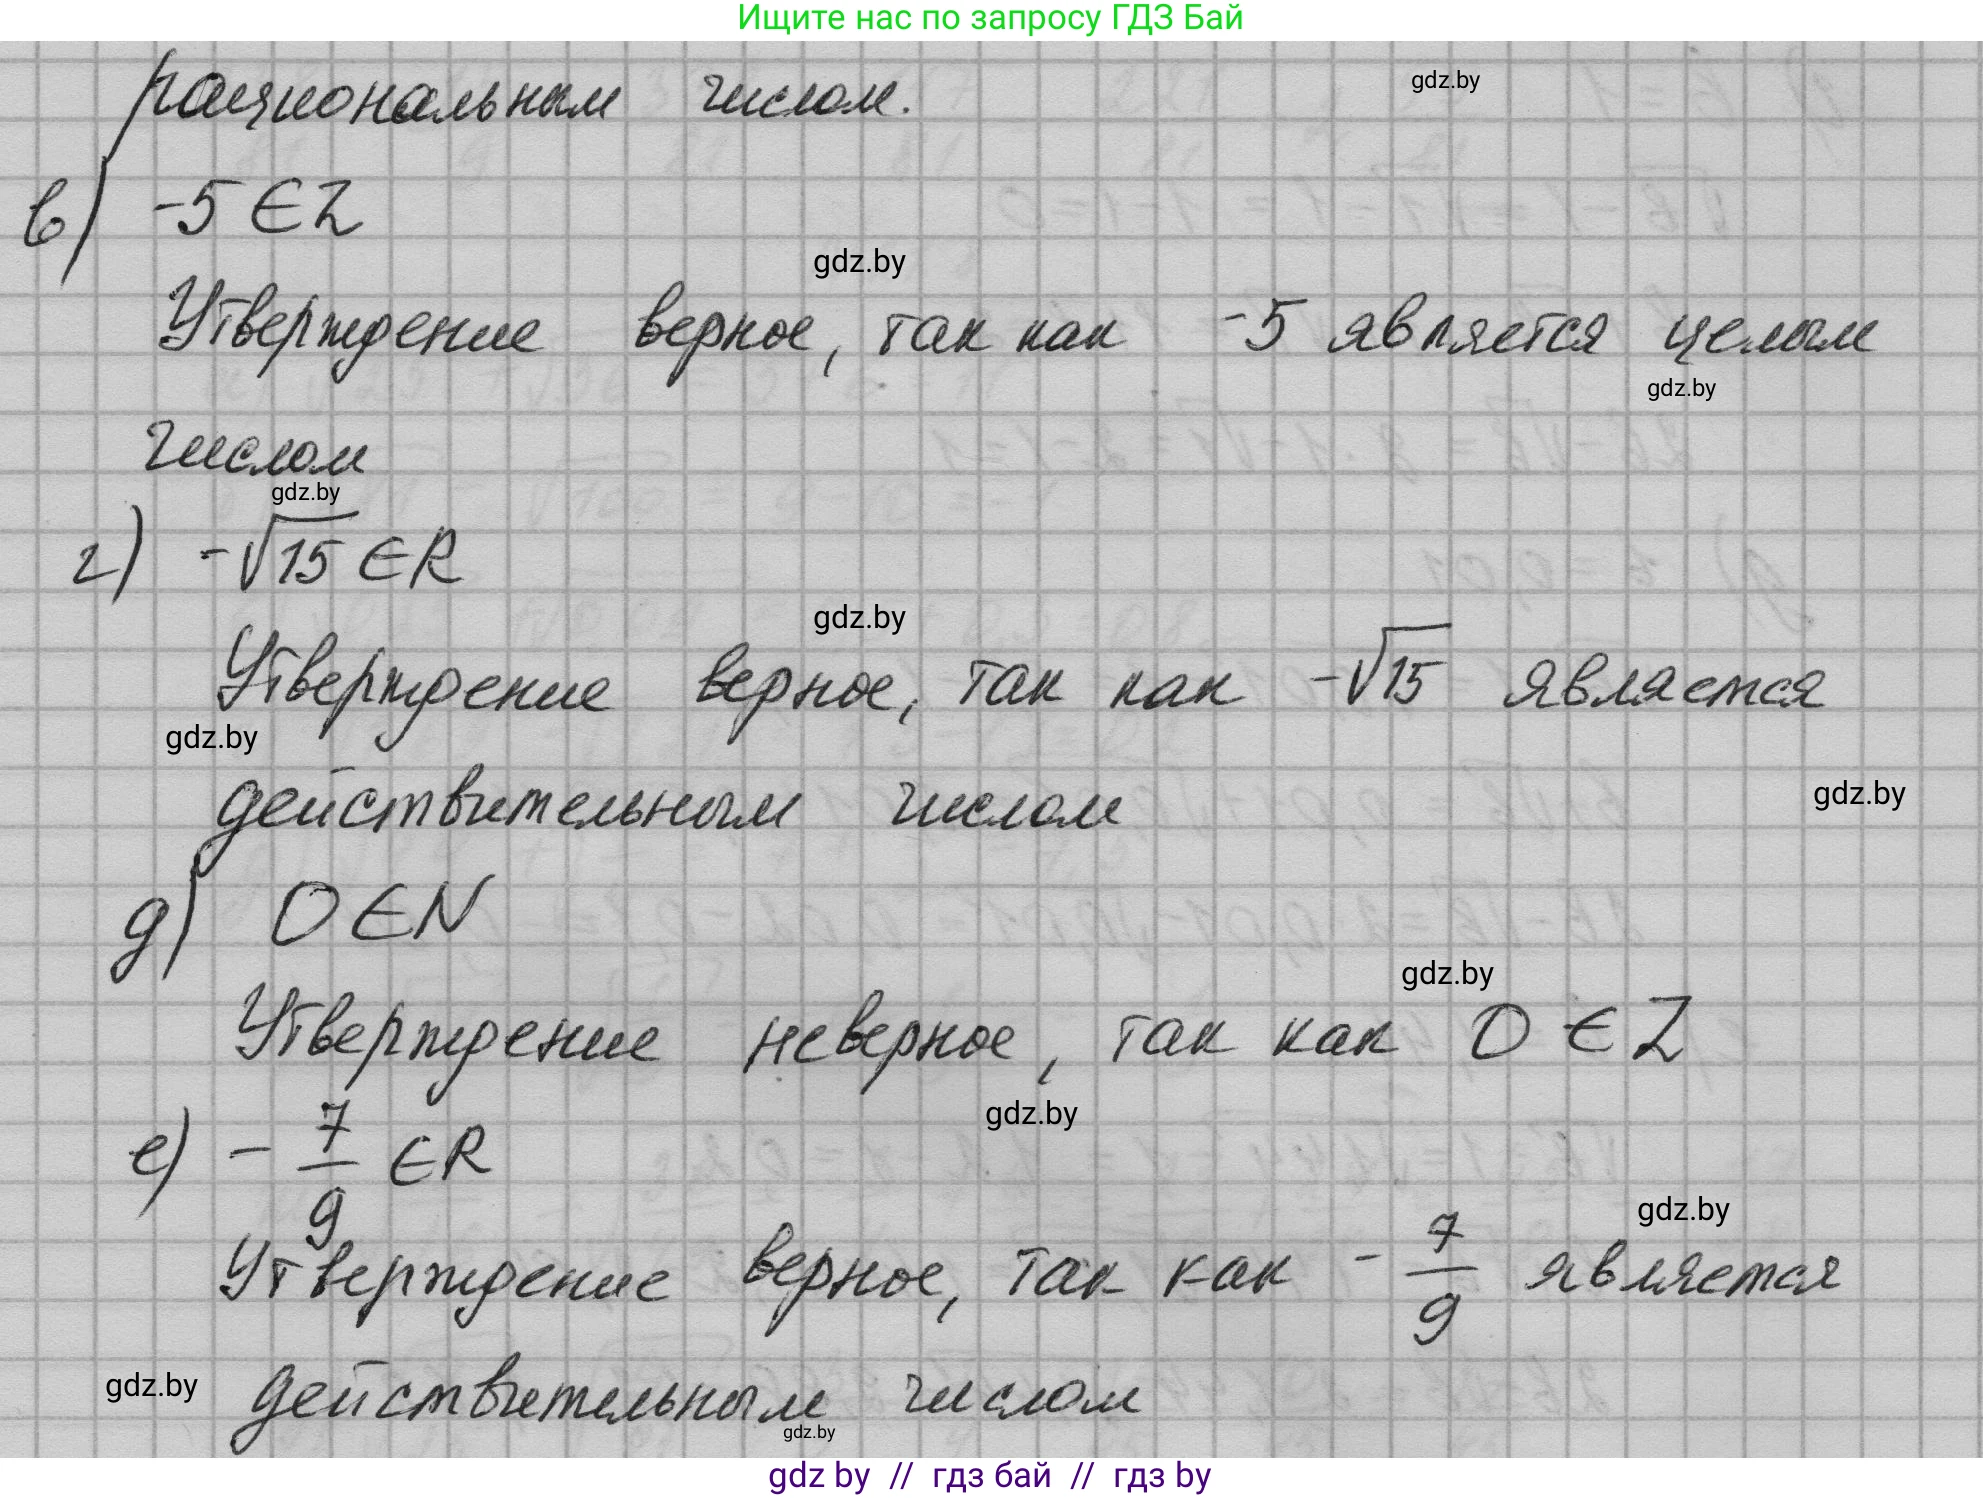 Ищите нас по запросу ГДЗ Бай
рациональным числом.
gdz.by
в) -5 ∈ Z
gdz.by
Утверждение верное, так как -5 является целым
gdz.by
числом
gdz.by
г) -√15 ∈ R
gdz.by
Утверждение верное, так как -√15 является
gdz.by
действительным числом
gdz.by
д) 0 ∈ N
gdz.by
Утверждение неверное, так как 0 ∈ Z
gdz.by
е) - 7/9 ∈ R
gdz.by
Утверждение верное, так как - 7/9 является
gdz.by
действительным числом
gdz.by
gdz by // гдз бай // гдз by